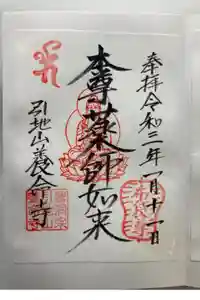 奉拝令和三年一月十一日
本尊薬師如来
引地山養命寺